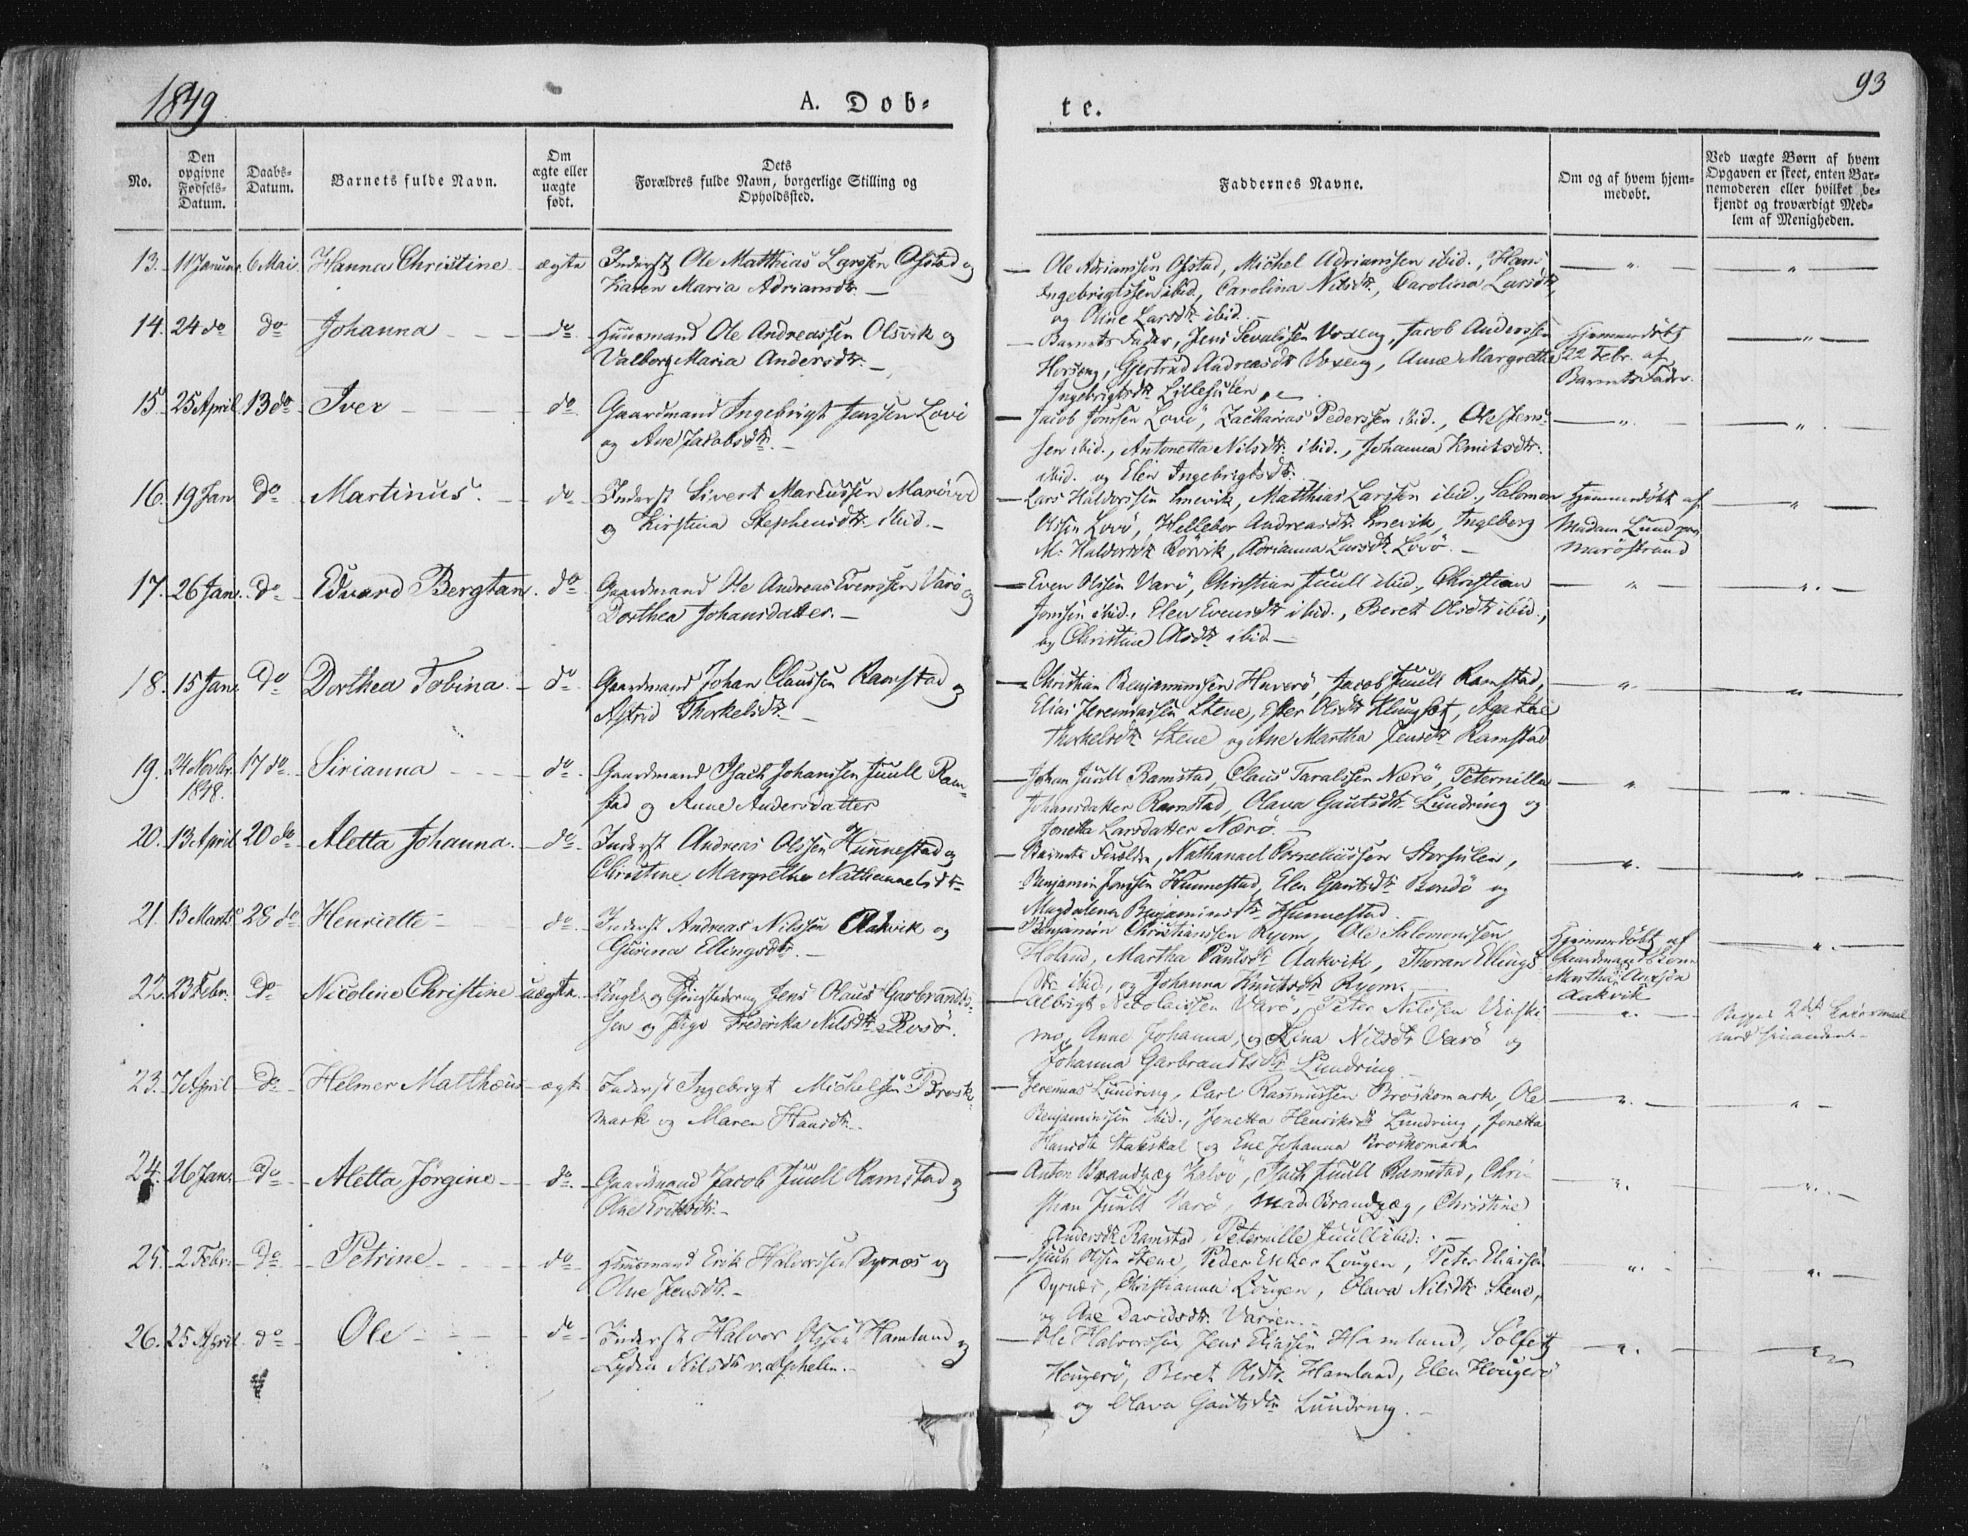 1849
A. Døb-
te.
93
No.
Den opgivne Fødsels-Datum.
Daabs-Datum.
Barnets fulde Navn.
Om ægte eller uægte født.
Dets Forældres fulde Navn, borgerlige Stilling og Opholdssted.
Faddernes Navne.
Om og af hvem hjem-medøbt.
Ved uægte Børn af hvem Opgaven er skeet, enten Bar-nemoderen eller hvilket be-kjendt og troværdigt Med-lem af Menigheden.
13. 11 Januar 6 Mai Hanna Christine ægte Inderst Ole Matthias Larssen Ofstad og
Karen Maria Adriansdtr.
Ole Adrianssen Ofstad, Michel Adrianssen ibid., Hans
Ingebrigtssen ibid, Carolina Nilsdtr., Carolina Larsdtr,
og Oline Larsdtr ibid.
14. 24 do do Johanna do Huusmand Ole Andreassen Olsvik og
Valborg Maria Andersdtr.
Barnets Fader, Jens Voxeng, Jacob Anderssen
Horseng, Gjertrud Andreasdtr Voxeng, Anne Margrethe
Ingebrigtsdtr Lillesulen
Hjemmedøbt
22 Febr. af
Barnets Fader
15. 25 April 13 do Iver do Gaardmand Ingebrigt Jenssen Lovö
og Ane Jakobsdtr.
Jacob Jonssen Lovö, Zacharias Pederssen ibid., Ole Jens-
sen ibid., Antonetta Nilsdtr. ibid., Johanna Knutsdtr.
ibid. og Elen Ingebrigtsdtr.
16. 19 Jan. do Martinus. do Inderst Sivert Marcussen Maröval
og Kirstina Stephensdtr. ibid.
Lars Haldorssen, Matthias Larssen ibid., Salomon
Olssen Lovö, Hellebor Andreasdtr., Ingeborg
M. Haldorsdtr Rörvik, Adrianna Larsdtr. Lovö.
Hjemmedøbt af
Madam Lund paa
Maröstrand
17. 26 Jan. do Edvard Bergtan. do Gaardmand Ole Andreas Evenssen Varö og
Dorthea Johansdatter.
Even Olssen Varö, Christian Juull ibid., Christian
Jonssen ibid., Elen Evensdtr ibid., Berett Olsdtr ibid.,
og Christine Olsdtr ibid
18. 15 Jan. do Dorthea Tobina. do Gaardmand Johan Claussen Ramstad og
Astrid Thorkelsdtr.
Christian Benjaminssen Huverö Jacob Juull Ramstad,
Elias Jeremiassen Stene, Ester Olsdtr Klungset, Agathe
Thorkelsdtr. Stene og Ane Martha Jensdtr Ramstad
19. 24 Novbr. 1848. 17 do Sirianna do Gaardmand Isach Johanssen Juull Ram-
stad og Anne Andersdatter
Johan Juull Ramstad, Claus Taralssen Nærö, Peternilla
Johansdatter Ramstad, Olava Gautsdtr. Lundring og
Jonetta Larsdatter Nærö.
20. 13 April 20 do Aletta Johanna. do Inderst Andreas Olssen Hunnestad og
Christine Margrethe Nathanaelsdtr
Barnets Forældre, Nathanael Corneliussen Storsulen,
Benjamin Jonssen Hunnestad, Elen Gautsdtr. Bondö og
Magdalena Benjaminsdtr. Hunnestad.
21. 13 Marts 28 do Henriette do Inderst Andreas Nilssen Aakvik og
Gurina Ellingsdtr.
Benjamin Christianssen Ryem, Ole Salomonssen
Holand, Martha Paulsdtr Aakvik, Thoran Ellings-
dtr. ibid, og Johanna Knutsdtr Ryem.
Hjemmedøbt af
Gaardmand
Aakvik
22. 23 Febr. do Nicoline Christine uægte. Ungk. og Jens Olaus Garbrandts-
sen og Pige Frederika Nilsdtr. Rosö.
Albrigt Nicolaissen Varö, Peter Nilssen
Anne Johanna, og Lina Nilsdtr Varö og
Johanna Garbrandtsdtr. Lundring.
Begges 2det Leiermaal
med hinanden.
23. 7 April do Helmer Matthæus ægte Inderst Ingebrigt Michelssen Brosk-
mark og Maren Hansdtr.
Jeremias Lundring, Carl Rasmussen Broskomark, Ole
Benjaminssen ibid., Jonetta Henriksdtr Lundring, Jonetta
Hansdtr og Ene Johanna Broskomark
24. 26 Jan. do Aletta Jörgine do Gaardmand Jacob Juull Ramstad og
Ane Eriksdtr.
Anton Brandtzæg Kalvö, Isach Juull Ramstad, Chri-
stian Juull Varö, Mad. Brandtzæg, Christine
Andersdtr. Ramstad, Peternille Juull ibid.
25. 2 Febr. do Petrine do Huusmand Erik Halvorssen Dyrnæs og
Ane Jensdtr.
Isach Olssen Stene, Peder Lougen, Peter Eliassen
Dyrnæs, Christianna Lougen, Olava Nilsdtr. Stene,
og Ane Davidsdtr. Varöen.
26. 25 April do Ole do Inderst Halvor Olssen Hamland og
Lydia Nilsdtr
Ole Halvorssen Jens Eliassen Hamland, Solfest
Hougerö, Beret Olsdtr. Hamland, Elen Hougerö
og Olava Gautsdtr Lundring.